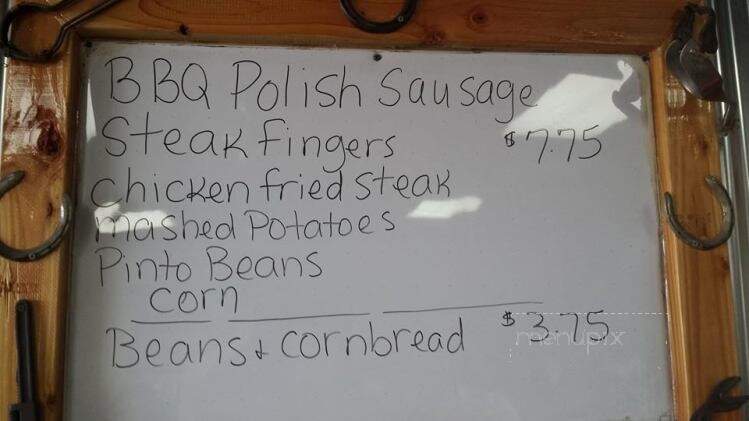 BBQ Polish Sausage
Steak fingers $7.75
chicken fried steak
mashed Potatoes
Pinto Beans
corn
Beans & cornbread $3.75
menupix